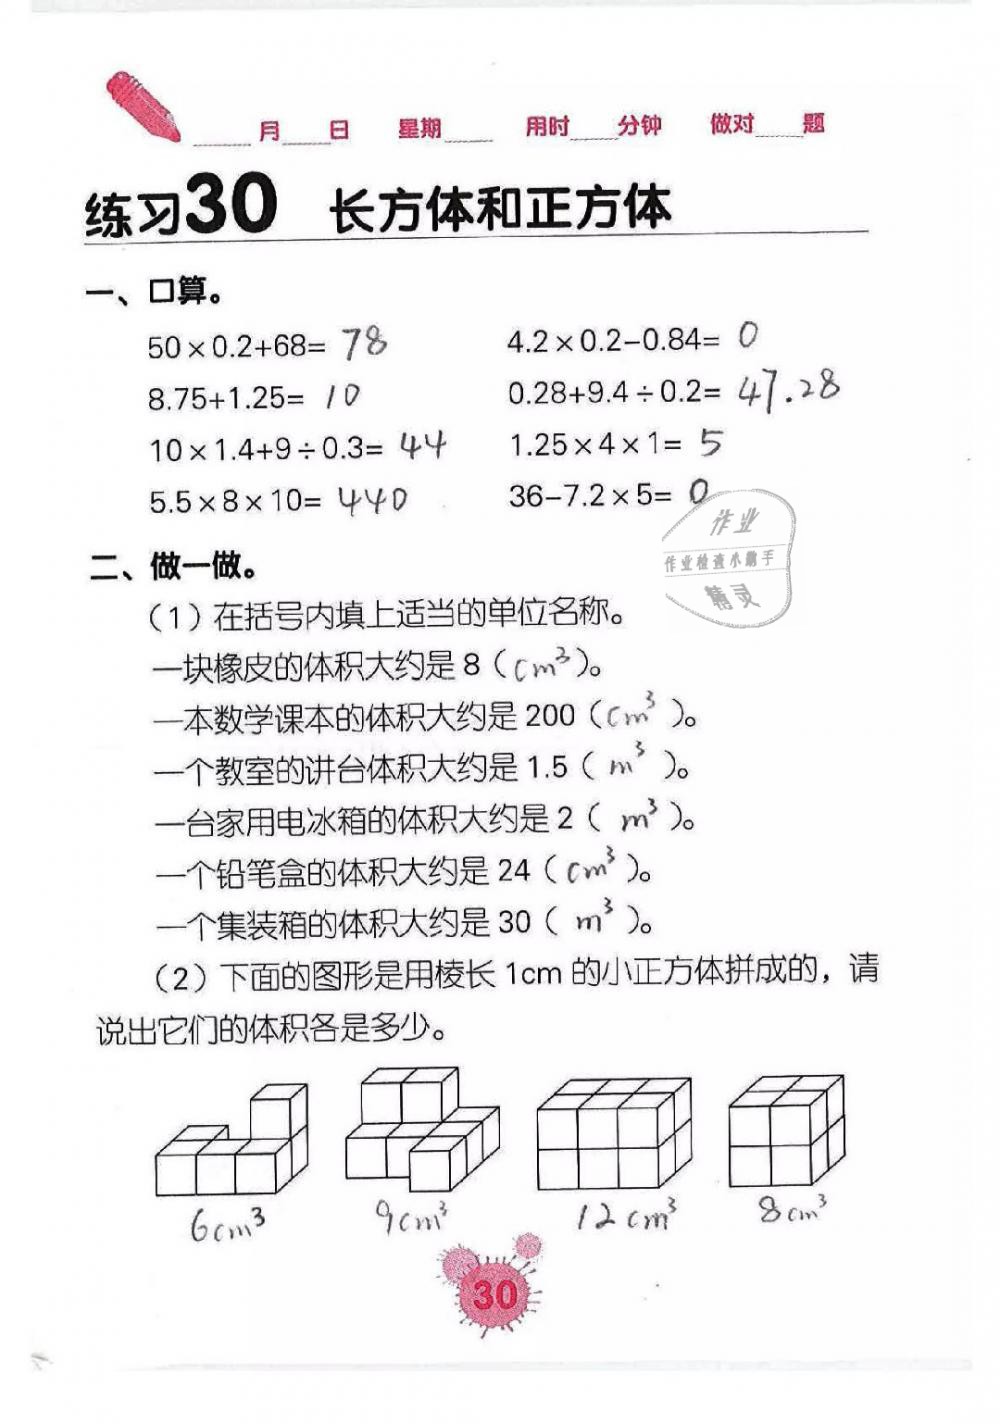 ____月____日 星期____ 用时____分钟 做对____题
练习30 长方体和正方体
一、口算。
50×0.2+68= 78 4.2×0.2−0.84= 0
8.75+1.25= 10 0.28+9.4÷0.2= 47.28
10×1.4+9÷0.3= 44 1.25×4×1= 5
5.5×8×10= 440 36−7.2×5= 0
作业
作业检查小助手
精灵
二、做一做。
（1）在括号内填上适当的单位名称。
一块橡皮的体积大约是 8（cm³）。
一本数学课本的体积大约是 200（cm³）。
一个教室的讲台体积大约是 1.5（m³）。
一台家用电冰箱的体积大约是 2（m³）。
一个铅笔盒的体积大约是 24（cm³）。
一个集装箱的体积大约是 30（m³）。
（2）下面的图形是用棱长 1cm 的小正方体拼成的，请
说出它们的体积各是多少。
6cm³ 9cm³ 12cm³ 8cm³
30